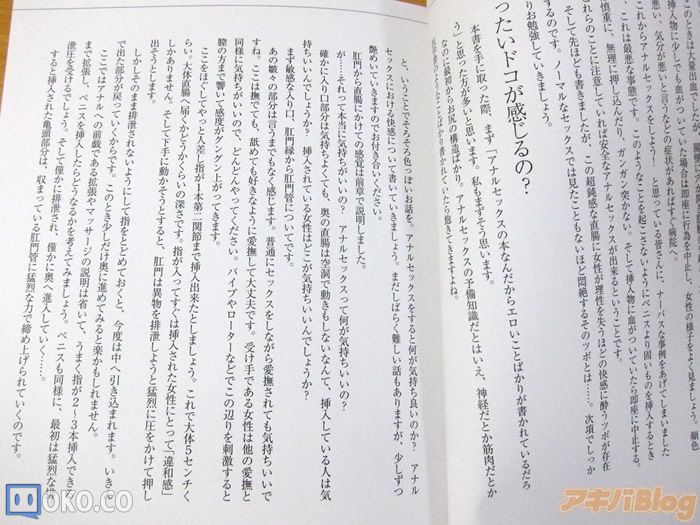 と大量出血でした
挿入物に少しでも血がついていた場合は即座に行為を中止し、女性の様子をよく見ましょう。顔色
悪い、気分が悪いと言うなどの症状があればすぐ病院へ。
これからアナルセックスをしよう！と思っている皆さんに、ナーバスな事例をあげてしまいました
が、これは最悪な事態です。このようなことを起こさないようにペニスより固いものを挿入するとき
は慎重に、無理に押し込んだり、ガンガン突かない。そして挿入物に血がついていたら即座に中止する。
これらのことに注意していれば安全なアナルセックスが出来るということです。
そして先ほども書きましたが、この超鈍感な直腸に女性が理性を失うほどの快感に酔うツボが存在
するのです。ノーマルなセックスでは見たこともないほど悶絶するそのツボとは……。次項でしっか
りお勉強していきましょう。
ったいドコが感じるの？
本書を手に取った際、まず「アナルセックスの本なんだからエロいことばかりが書かれているんだろ
う」と思った方が多いと思います。私もまずそう思います。
なのに最初からお尻の構造ばかり。アナルセックスの予備知識だとはいえ、神経だとか筋肉だとか
ばかり書かれていたら飽きてきますよね。
と、いうことでそろそろ色っぽいお話を。アナルセックスをすると何が気持ち良いのか？　アナル
セックスにおける快感について書いていきましょう。まだしばらく難しい話もありますが、少しずつ
艶めいていきますのでお付き合いください。
肛門から直腸にかけての感覚は前章で説明しました。
が……それって本当に気持ちがいいの？　アナルセックスって何が気持ちいいの？
確かに入り口部分は気持ちよくても、奥の直腸は空洞で動きもしないなんて、挿入している人は気
持ちいいんでしょうか？　挿入されている女性はどこが気持ちいいんでしょうか？
まず敏感な入り口、肛門縁から肛門管についてです。
あの皺々の部分は言うまでもなく感じます。普通にセックスをしながら愛撫されても気持ちいいで
すね。ここは撫でても、舐めても好きなように愛撫して大丈夫です。受け手である女性は他の愛撫と
同様に気持ちがいいので、どんどんやってください。バイブやローターなどでこの辺りを刺激すると
膣の方まで響いて感度がグングン上がってきます。
ここをほぐしてやっと人差し指が１本第二関節まで挿入出来たとしましょう。これで大体５センチく
らい。大体直腸へ届くかどうかくらいの深さです。指が入ってすぐは挿入された女性にとって「違和感」
しかありません。そして下手に動かそうとすると、肛門は異物を排泄しようと猛烈に圧をかけて押し
出そうとします。
しかしそのまま排泄されないようにして指をとどめておくと、今度は中へ引き込まれます。いきん
で出た部分が戻っていくからです。このとき少しだけ奥に進めてみると楽かもしれません。
ここではアナルへの前戯である拡張やマッサージの説明は省いて、うまく指が２～３本挿入でき
まで拡張し、ペニスを挿入したらどうなるかを考えてみましょう。ペニスも同様に、最初は猛烈な排
泄圧を受けるでしょう。そして僅かに排泄され、僅かに奥へ進入していく……。
すると挿入された亀頭部分は、収まっている肛門管に猛烈な力で締め上げられていくのです。
OKO.CO
アキバBlog